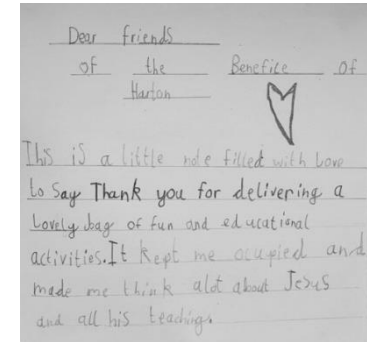 Dear friends
of the Benefice of
Harton
This is a little note filled with Love
to Say Thank you for delivering a
Lovely bag of fun and educational
activities. It kept me ocupied and
made me think alot about Jesus
and all his teachings